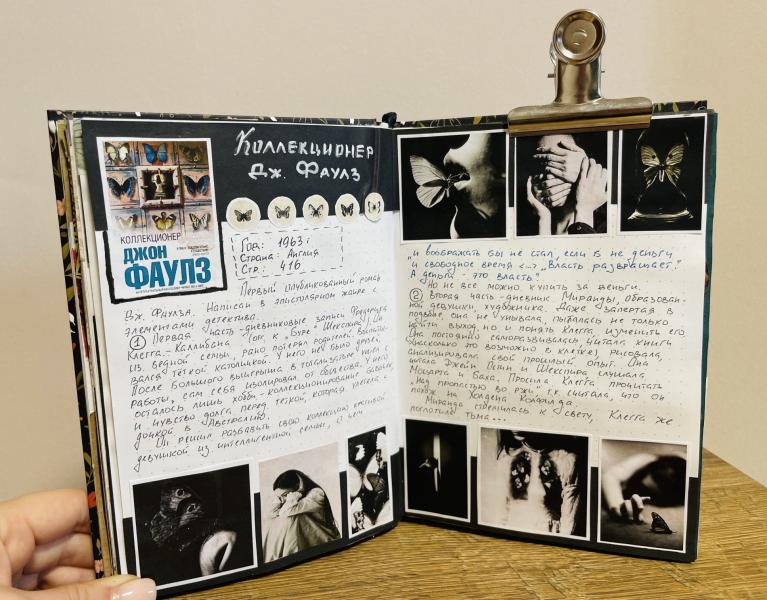 Коллекционер
Дж. Фаулз
КОЛЛЕКЦИОНЕР
ДЖОН
ФАУЛЗ
Год: 1963 г
Страна: Англия
Стр: 416
Первый опубликованный роман
Дж. Фаулза. Написан в эпистолярном жанре с
элементами детектива.
① Первая часть-дневниковые записи Фредерика
Клегга-Каллибана из "Буре" Шекспира). Он
из бедной семьи, рано потерял родителей. Воспиты-
вался тёткой католичкой. У него нет было друзей, с
После большого выигрыша в тотализатор ушёл с
работы, сам себя изолировал от общества. У него
осталось лишь хобби-коллекционирование бабочек
и чувство долга перед тёткой, которая уехала с
дочкой в Австралию.
Он решил разбавить свою коллекцию красивой
девушкой из интеллигентной семьи, о чем
„и воображать бы не стал, если б не деньги
и свободное время <...> „Власть развращает".
А деньги - это власть"
Но не все можно купить за деньги.
② Вторая часть-дневник Миранды, образован-
ной девушки, художника. Даже запертая в
подвале, она не унывала, пыталась не только
найти выход, но и понять Клегга, изменить его.
Она постоянно саморазвивалась, читала книги
(насколько это возможно в клетке), рисовала,
анализировала свой прошлый опыт. Она
читала Джейн Остин и Шекспира слушала
Моцарта и Баха. Просила Клегга прочитать
„Над пропастью во ржи", т.к считала, что он
похож на Холдена Колфилда.
Миранда стремилась к свету, Клегга же
поглотила тьма...